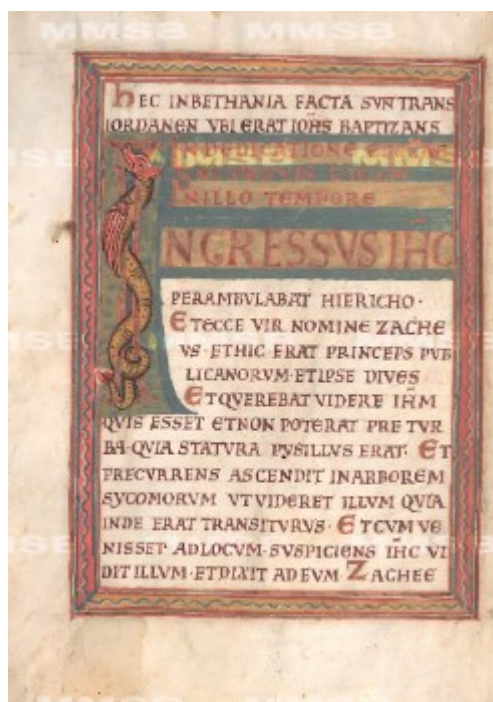 MMSB MMSB
HEC INBETHANIA FACTA SVN TRANS
IORDANEN VBI ERAT IOHS BAPTIZANS
IN DEDICATIONE
MMSB MMSB
INILLO TEMPORE
INGRESSVS IHC
PERAMBVLABAT HIERICHO·
ETECCE VIR NOMINE ZACHE
VS·ETHIC ERAT PRINCEPS PVB
LICANORVM·ETIPSE DIVES
ETQVEREBAT VIDERE IHM
QVIS ESSET ETNON POTERAT PRE TVR
BA·QVIA STATVRA PVSILLVS ERAT· ET
PRECVRRENS ASCENDIT INARBOREM
SYCOMORVM VTVIDERET ILLVM QVIA
INDE ERAT TRANSITVRVS· ETCVM VE
NISSET ADLOCVM·SVSPICIENS IHC VI
DIT ILLVM·ETDIXIT ADEVM ZACHEE